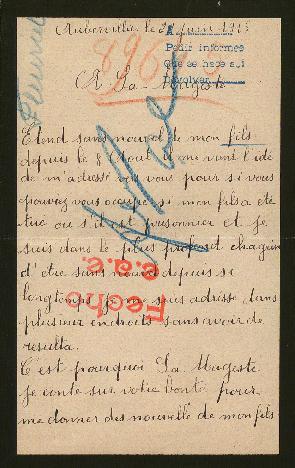 Aubervillier le 21 juin 1915
Pedir informes
Que se hace así
896
A Sa Magesté
Etend sans nouvel de mon fils
depuis le 8 Aout il me vient l'idé
de m'adressé vers vous pour si vous
pouvez vous occupé si mon fils a été
tué ou s'il est prisonnier et je
suis dans le plus profond chagrin
d'être sans nouvel depuis si
longtemps je me suis adressé dans
plusieur endroits sans avoir de
resulta.
C'est pourquoi Sa Magesté
je conte sur votre bonté pour
me donner des nouvelle de mon fils
Fecho
c.a.e.